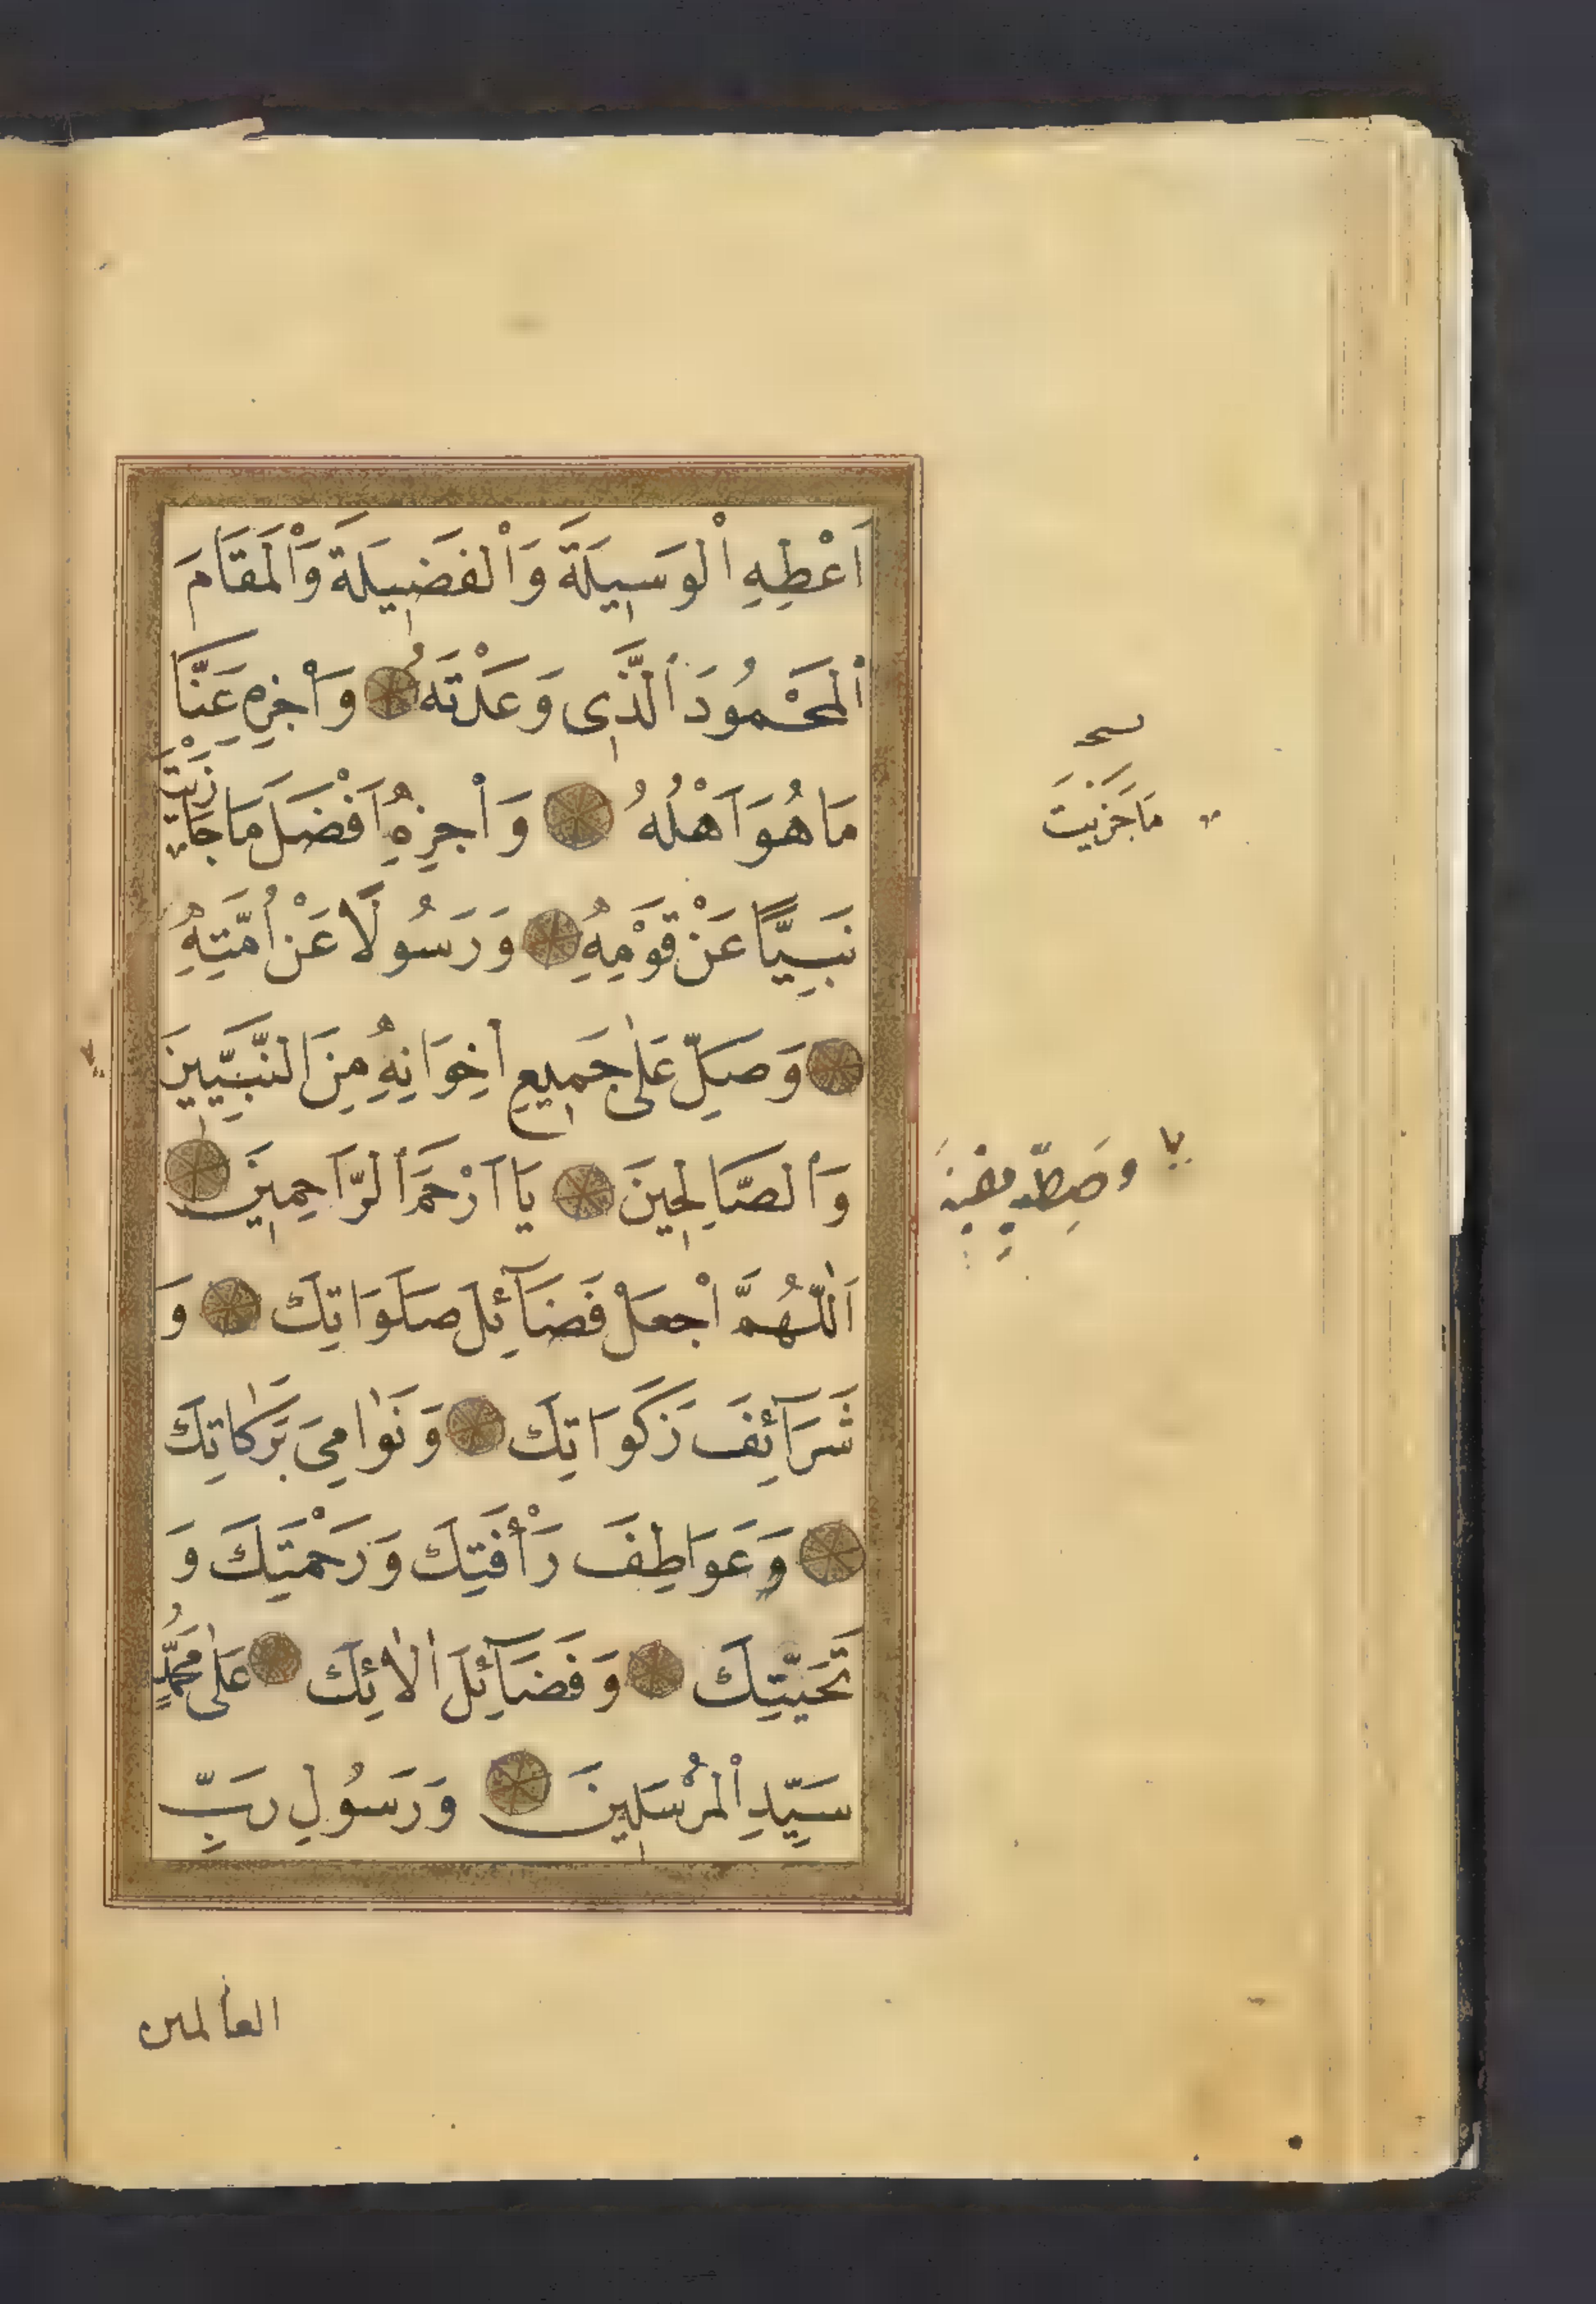 اَعْطِهِ اْلوَسِيلَةَ وَاْلفَضِيلَةَ وَاْلمَقَامَ
اْلمَحْمُودَ الَّذِى وَعَدْتَهُ وَاْجْزِهِ عَنَّا
مَا هُوَ اَهْلُهُ وَاْجْزِهِ اَفْضَلَ مَا جَازَيْتَ
نَبِيًّا عَنْ قَوْمِهِ وَرَسُولًا عَنْ اُمَّتِهِ
وَصَلِّ عَلٰى جَمِيعِ اِخْوَانِهِ مِنَ النَّبِيِّينَ
وَالصَّالِحِينَ يَا اَرْحَمَ الرَّاحِمِينَ
اَللّٰهُمَّ اْجْعَلْ فَضَآئِلَ صَلَوَاتِكَ وَ
شَرَآئِفَ زَكَوَاتِكَ وَنَوٰامِىَ بَرَكَاتِكَ
وَعَوَاطِفَ رَأْفَتِكَ وَرَحْمَتِكَ وَ
تَحِيَّتِكَ وَفَضَآئِلَ اٰلَائِكَ عَلٰى مُحَمَّدٍ
سَيِّدِ اْلمُرْسَلِينَ وَرَسُولِ رَبِّ
مَا جَزَيْتَ
العالمين